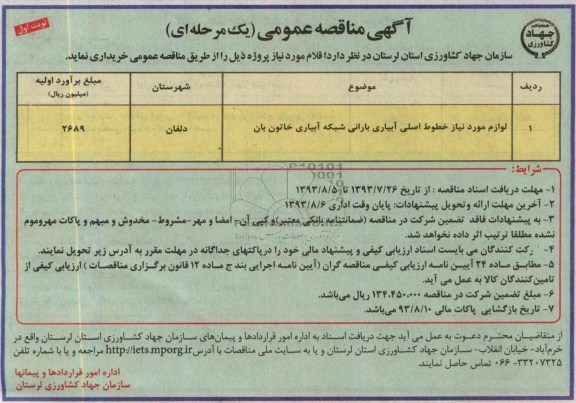 نوبت اول
جهاد
کشاورزی
آگهی مناقصه عمومی (یک مرحله ای)
سازمان جهاد کشاورزی استان لرستان در نظر دارد؛ اقلام مورد نیاز پروژه ذیل را از طریق مناقصه عمومی خریداری نماید.
ردیف
موضوع
شهرستان
مبلغ برآورد اولیه
(میلیون ریال)
۱
لوازم مورد نیاز خطوط اصلی آبیاری بارانی شبکه آبیاری خاتون بان
دلفان
۲۶۸۹
شرایط:
۱- مهلت دریافت اسناد مناقصه : از تاریخ ۱۳۹۳/۷/۲۶ تا ۱۳۹۳/۸/۵
۲- آخرین مهلت ارائه و تحویل پیشنهادات: پایان وقت اداری ۱۳۹۳/۸/۶
۳- به پیشنهادات فاقد تضمین شرکت در مناقصه (ضمانتنامه بانکی معتبر) و کپی آن- امضا و مهر-مشروط- مخدوش و مبهم و پاکات مهروموم
نشده مطلقا ترتیب اثر داده نخواهد شد.
۴- کت کنندگان می بایست اسناد ارزیابی کیفی و پیشنهاد مالی خود را درپاکتهای جداگانه در مهلت مقرر به آدرس زیر تحویل نمایند.
۵- مطابق ماده ۲۴ آیین نامه ارزیابی کیفی مناقصه گران (آیین نامه اجرایی بند ج ماده ۱۲ قانون برگزاری مناقصات ) ارزیابی کیفی از
تامین‌کنندگان کالا به عمل می آید.
۶- مبلغ تضمین شرکت در مناقصه ۱۳۴،۴۵۰،۰۰۰ ریال می‌باشد.
۷- تاریخ بازگشایی پاکات مالی ۹۳/۸/۱۰ می باشد.
از متقاضیان محترم دعوت به عمل می آید جهت دریافت اسناد به اداره امور قراردادها و پیمان‌های سازمان جهاد کشاورزی استان لرستان واقع در
خرم‌آباد- خیابان انقلاب- سازمان جهاد کشاورزی استان لرستان و یا به سایت ملی مناقصات با آدرس http://iets.mporg.ir مراجعه و یا با شماره تلفن
۳۳۲۰۷۳۲۵-۰۶۶ تماس حاصل نمایند.
اداره امور قراردادها و پیمانها
سازمان جهاد کشاورزی لرستان